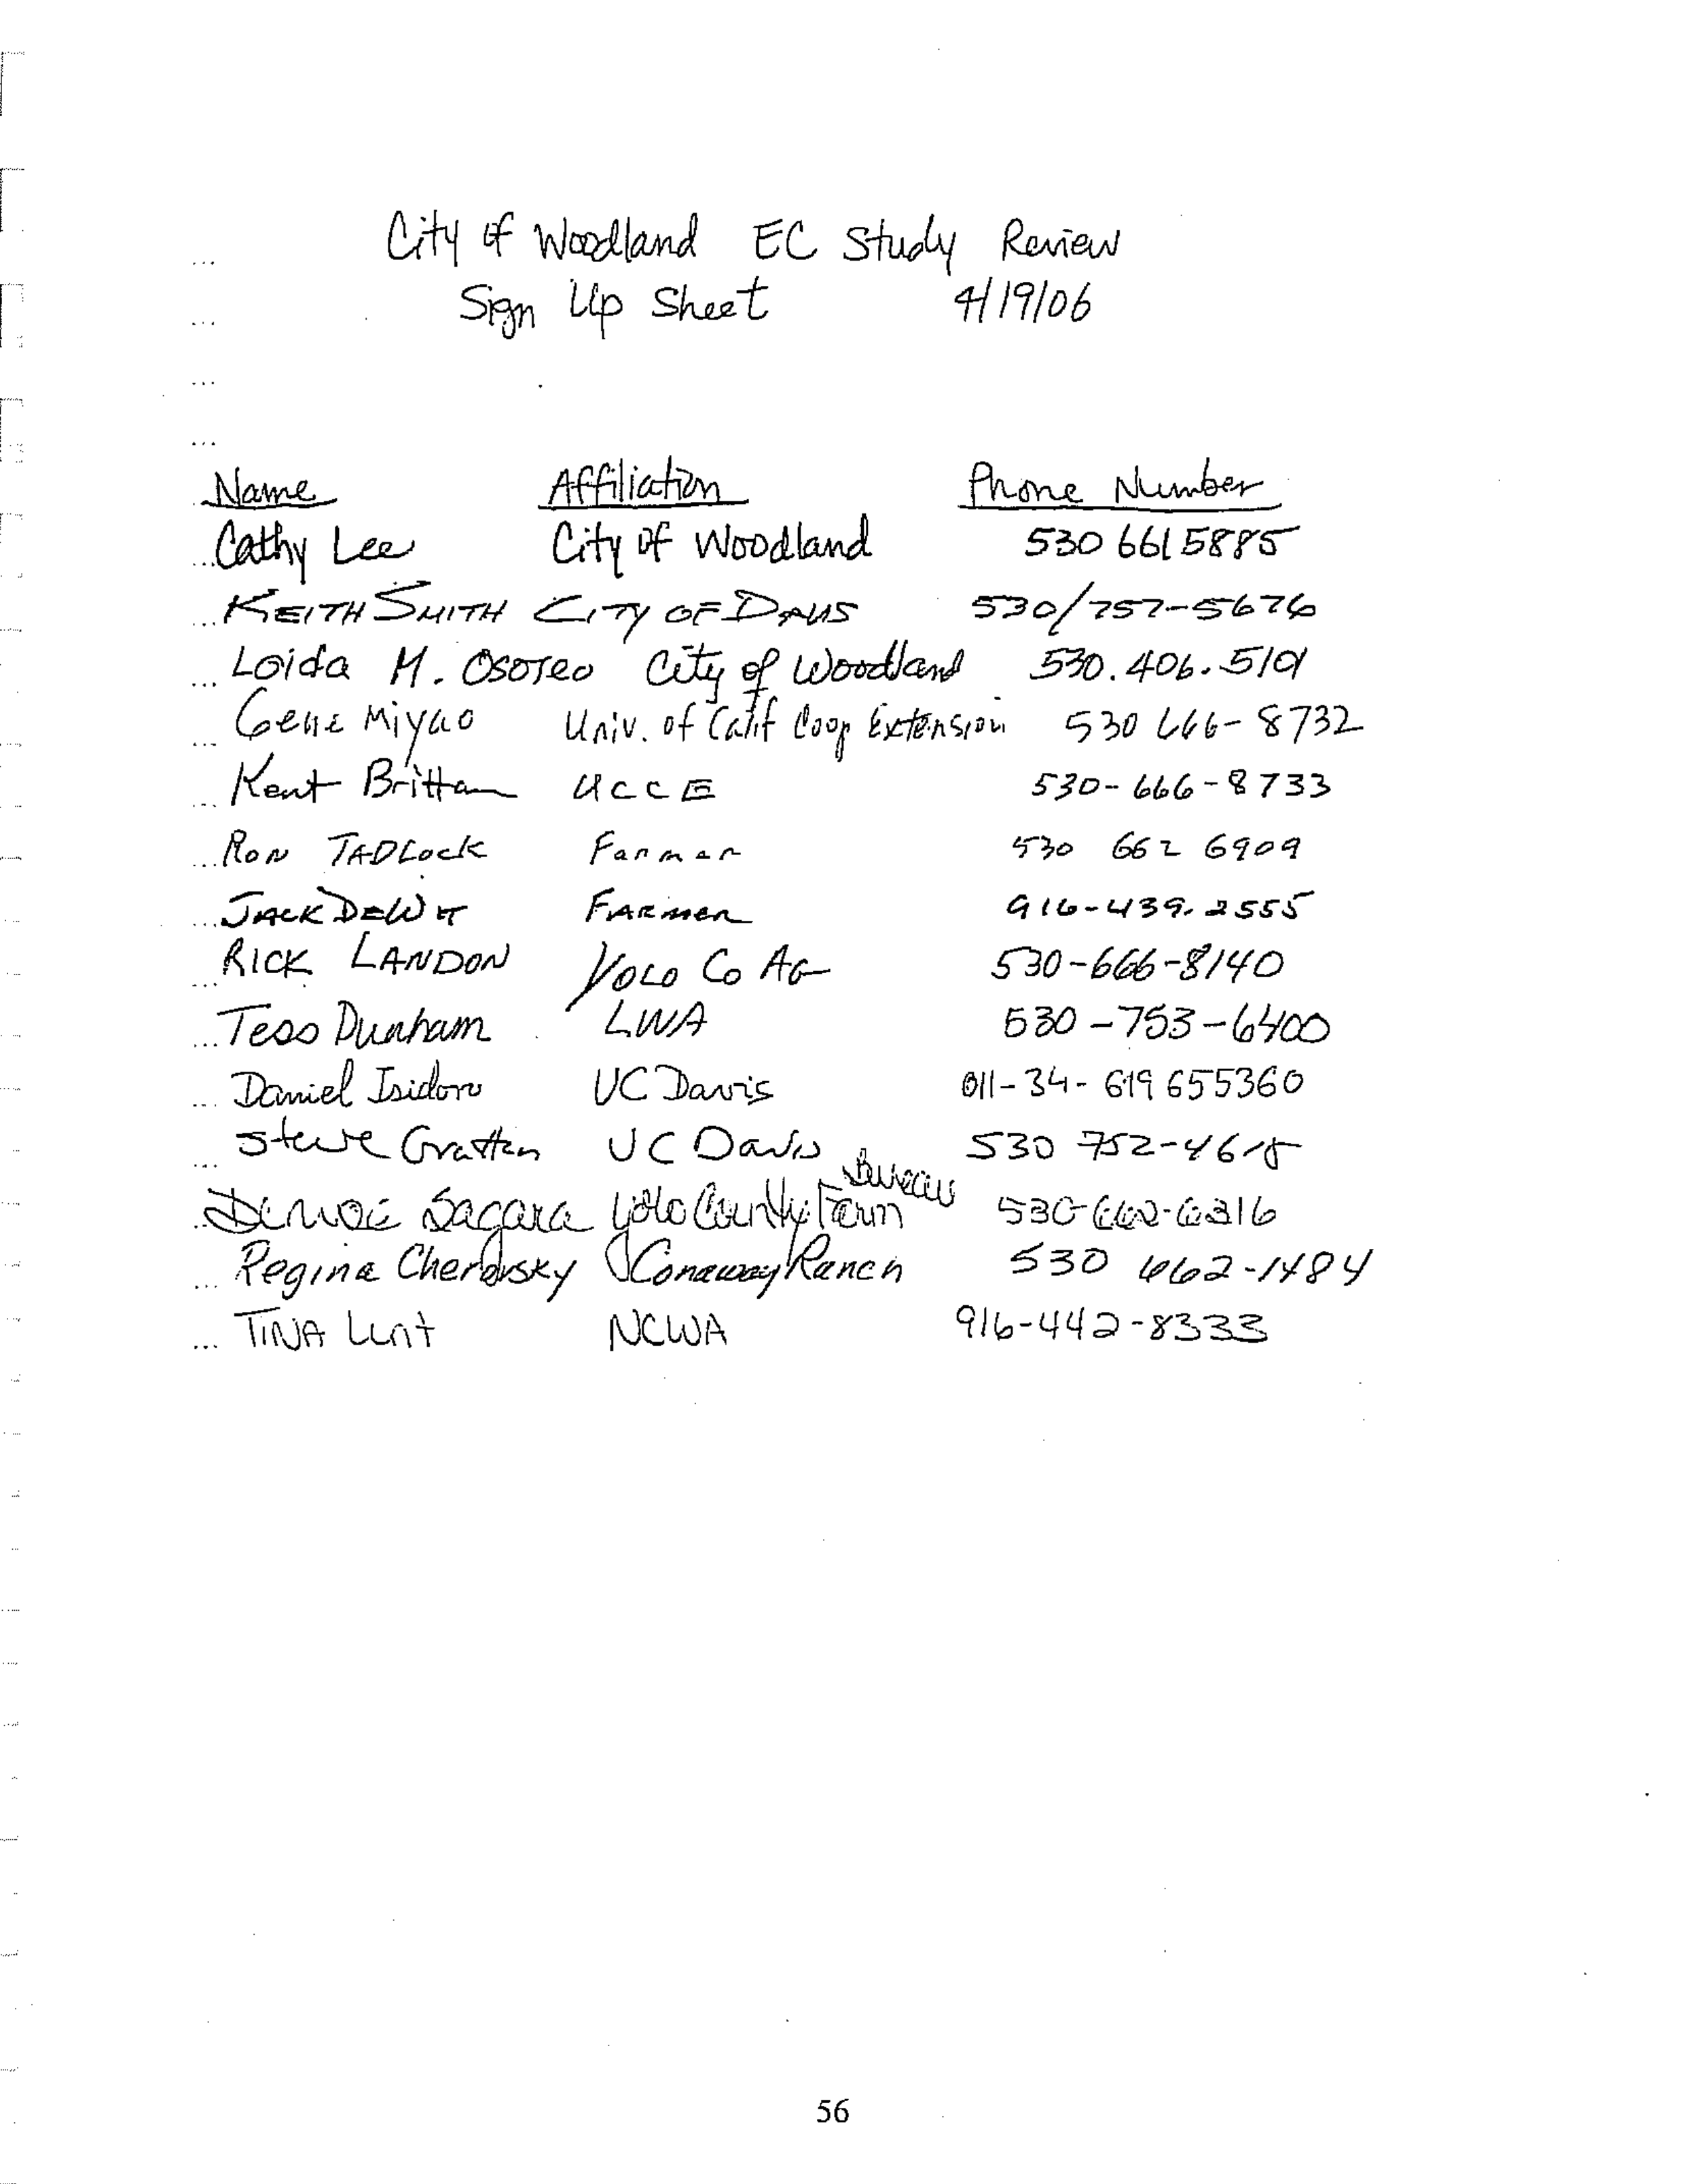 City of Woodland EC Study Review
Sign Up Sheet 4/19/06
Name Affiliation Phone Number
Cathy Lee City of Woodland 530 661 5885
KEITH SMITH CITY OF DAVIS 530/757-5676
Loida M. Ososeo City of Woodland 530.406.5101
Gene Miyao Univ. of Calif Coop Extension 530 666-8732
Kent Brittan UCCE 530-666-8733
RON TADLOCK Farmer 530 662 6909
JACK DEWIT FARMER 916-439.2555
RICK LANDON YOLO Co AG 530-666-8140
Tess Dunham LWA 530-753-6400
Daniel Isidoro UC Davis 011-34-619 655360
Steve Grattan UC Davis 530 752-4618
Denise Sagara Yolo County Farm Bureau 530-662-6316
Regina Cherovsky Conaway Ranch 530 662-1484
TINA Lunt NCWA 916-442-8333
56